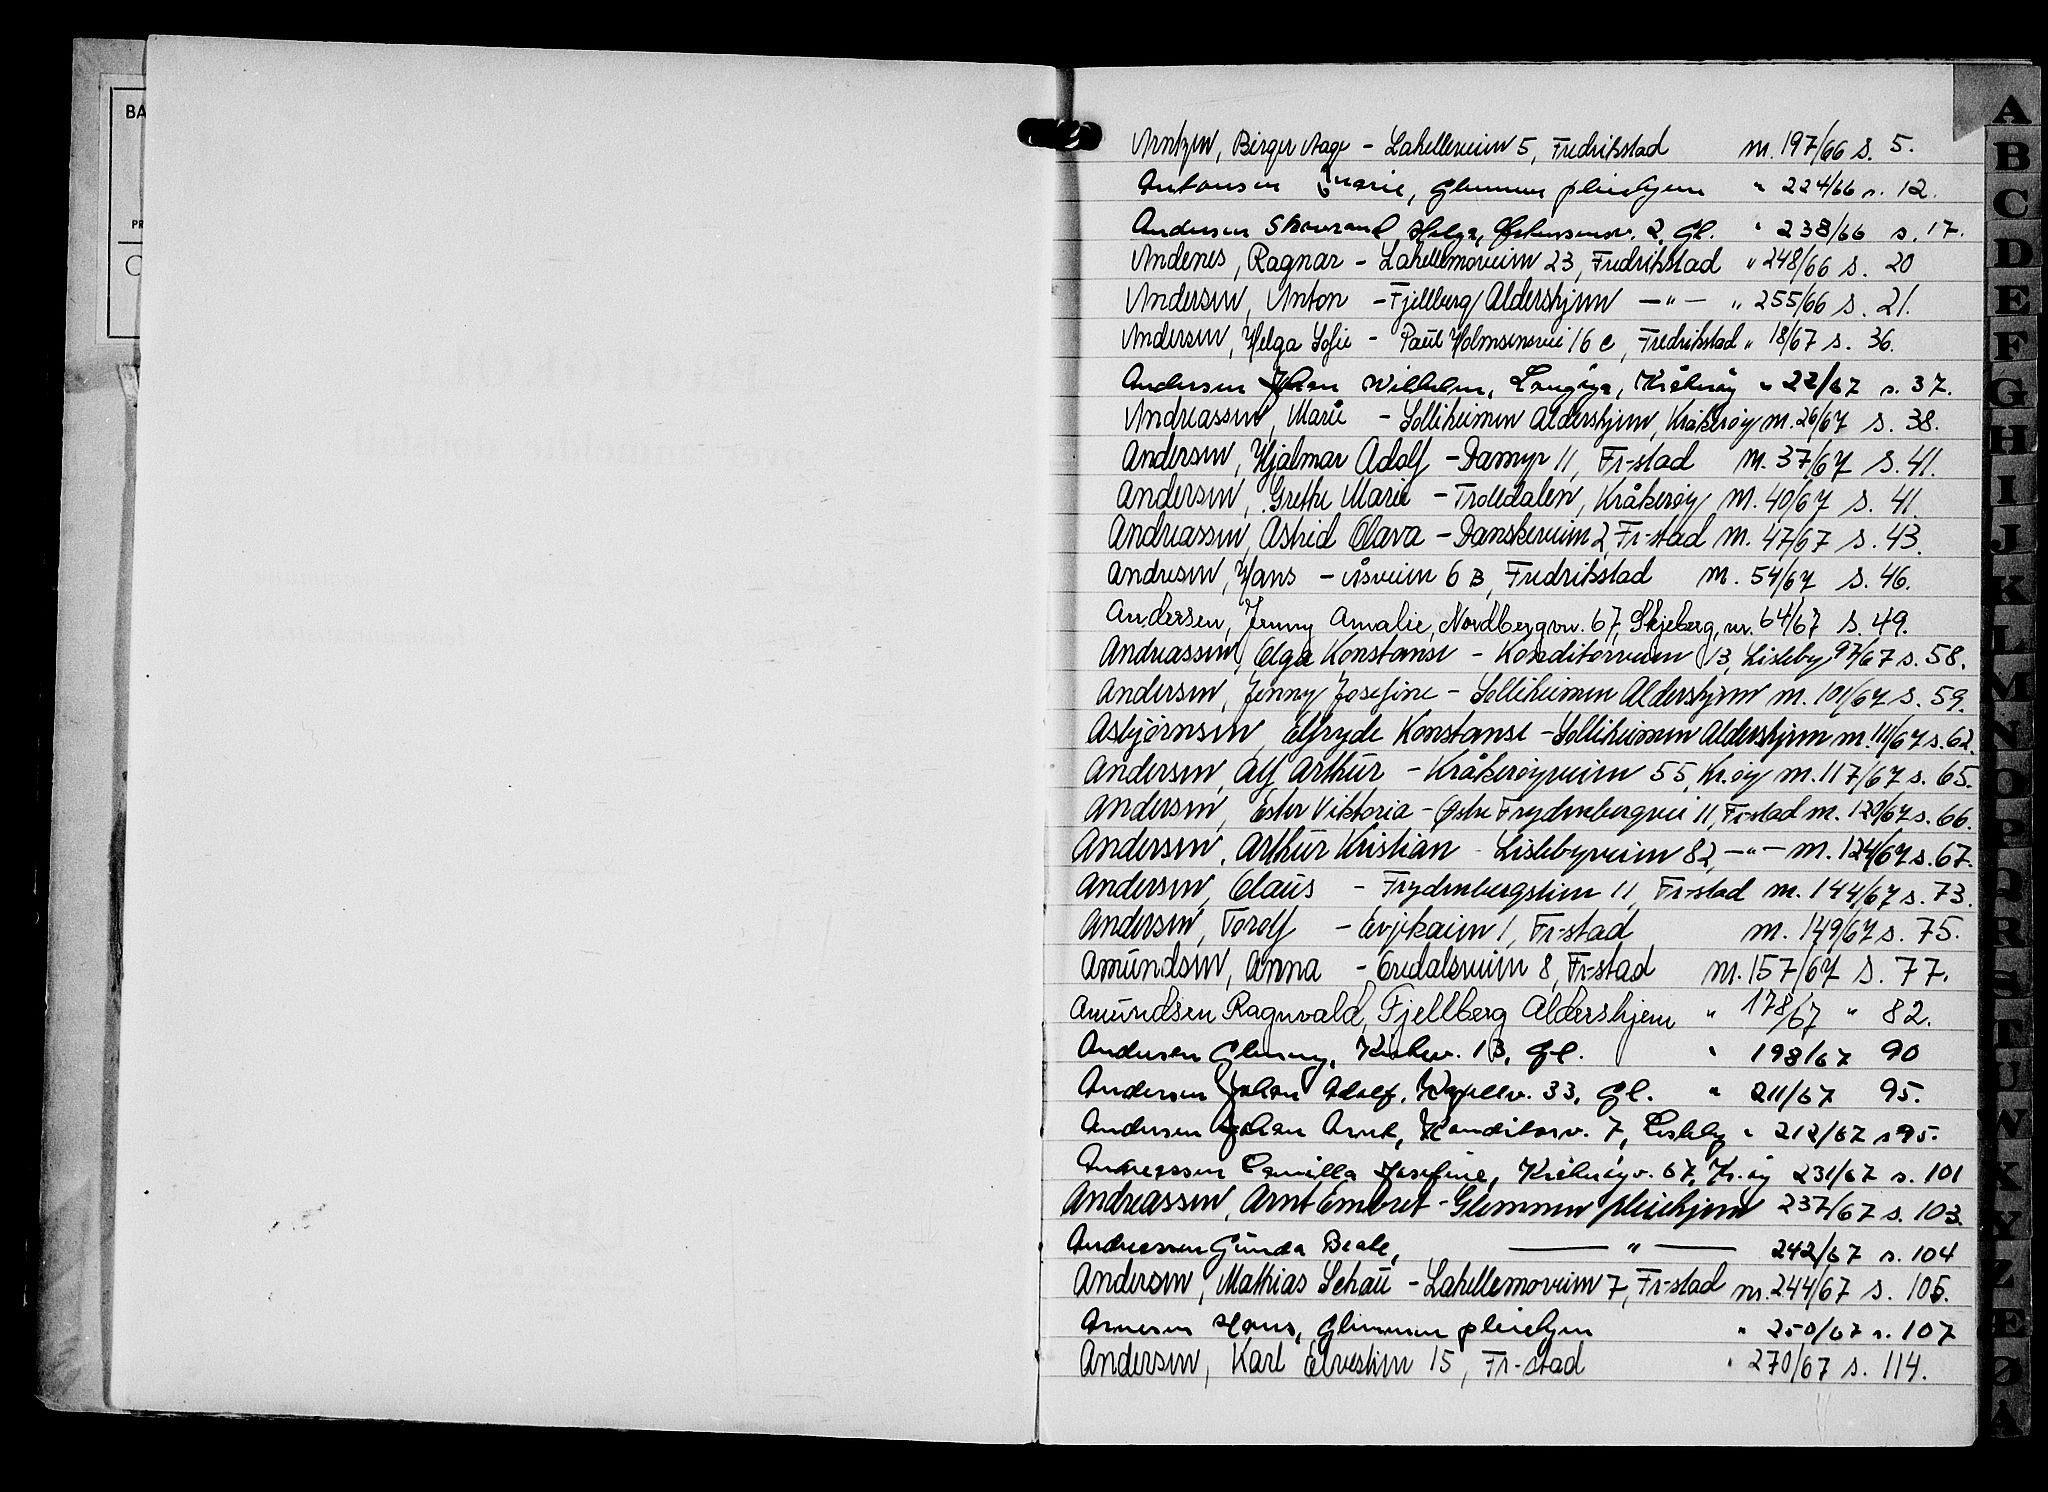 BA
PR
Arntzen, Birger Aage - Lahelleveien 5, Fredrikstad m. 197/66 s. 5.
Antonsen Marie, Glemmen pleiehjem " 224/66 s. 12.
Andersen Helga, 2, Gl. " 238/66 s. 17.
Andenes, Ragnar - Lahellemoveien 23, Fredrikstad " 248/66 s. 20
Andersen, Anton - Fjellberg Aldershjem — " — " 255/66 s. 21.
Andersen, Helga Sofie - Paul Holmsensvei 16 c, Fredrikstad " 18/67 s. 36.
Andersen Johan Wilhelm, Langøya, Kråkerøy " 22/67 s. 37.
Andreassen, Marie - Solliheimen Aldershjem, Kråkerøy m. 26/67 s. 38.
Andersen, Hjalmar Adolf - Damyr 11, Fr-stad m. 37/67 s. 41.
Andersen, Grethe Marie - Trolldalen, Kråkerøy m. 40/67 s. 41.
Andreassen, Astrid Olava - Danskeveien 2, Fr-stad m. 47/67 s. 43.
Andresen, Hans - Åsveien 6 B, Fredrikstad m. 54/67 s. 46.
Andersen, Jenny Amalie, Nordbergvn. 67, Skjeberg, nr. 64/67 s. 49.
Andreassen, Olga Konstanse - Konditorveien 13, Lisleby 97/67 s. 58.
Andersen, Jenny Josefine - Solliheimen Aldershjem m. 101/67 s. 59.
Asbjørnsen, Elfryde Konstanse - Solliheimen Aldershjem m. 111/67 s. 62.
Andersen, Alf Arthur - Kråkerøyveien 55, Kr.øy m. 117/67 s. 65.
Andersen, Ester Viktoria - Østre Frydenbergvei 11, Fr-stad m. 120/67 s. 66.
Andersen, Arthur Kristian - Lislebyveien 82, — " — m. 124/67 s. 67.
Andersen, Claus - Frydenbergstien 11, Fr-stad m. 144/67 s. 73.
Andersen, Torolf - Evjekaien 1, Fr-stad m. 149/67 s. 75.
Amundsen, Anna - Oredalsveien 8, Fr-stad m. 157/67 s. 77.
Amundsen Ragnvald, Fjellberg Aldershjem " 178/67 " 82.
Andersen Glenny, Kirkev. 1 B, Gl. " 198/67 90
Andersen Johan Adolf, Kapellv. 33, Gl. " 211/67 95.
Andersen Johan Arnt, Konditorv. 7, Lisleby " 212/67 s 95.
Andreassen Camilla Josefine, Kråkerøyv. 67, Kr.øy 231/67 s. 101
Andreassen, Arnt Embret - Glemmen pleiehjem 237/67 s. 103.
Andreassen Gunda Beate, — " — 242/67 s. 104
Andersen, Mathias Schau - Lahellemoveien 7, Fr-stad nr. 244/67 s. 105.
Arnesen Hans, Glemmen pleiehjem " 250/67 s. 107
Andersen, Karl Elvestien 15, Fr-stad " 270/67 s. 114.
A
B
C
D
E
F
G
H
I
J
K
L
M
N
O
P
Q
R
S
T
U
V
X
Y
Z
Æ
Ø
Å